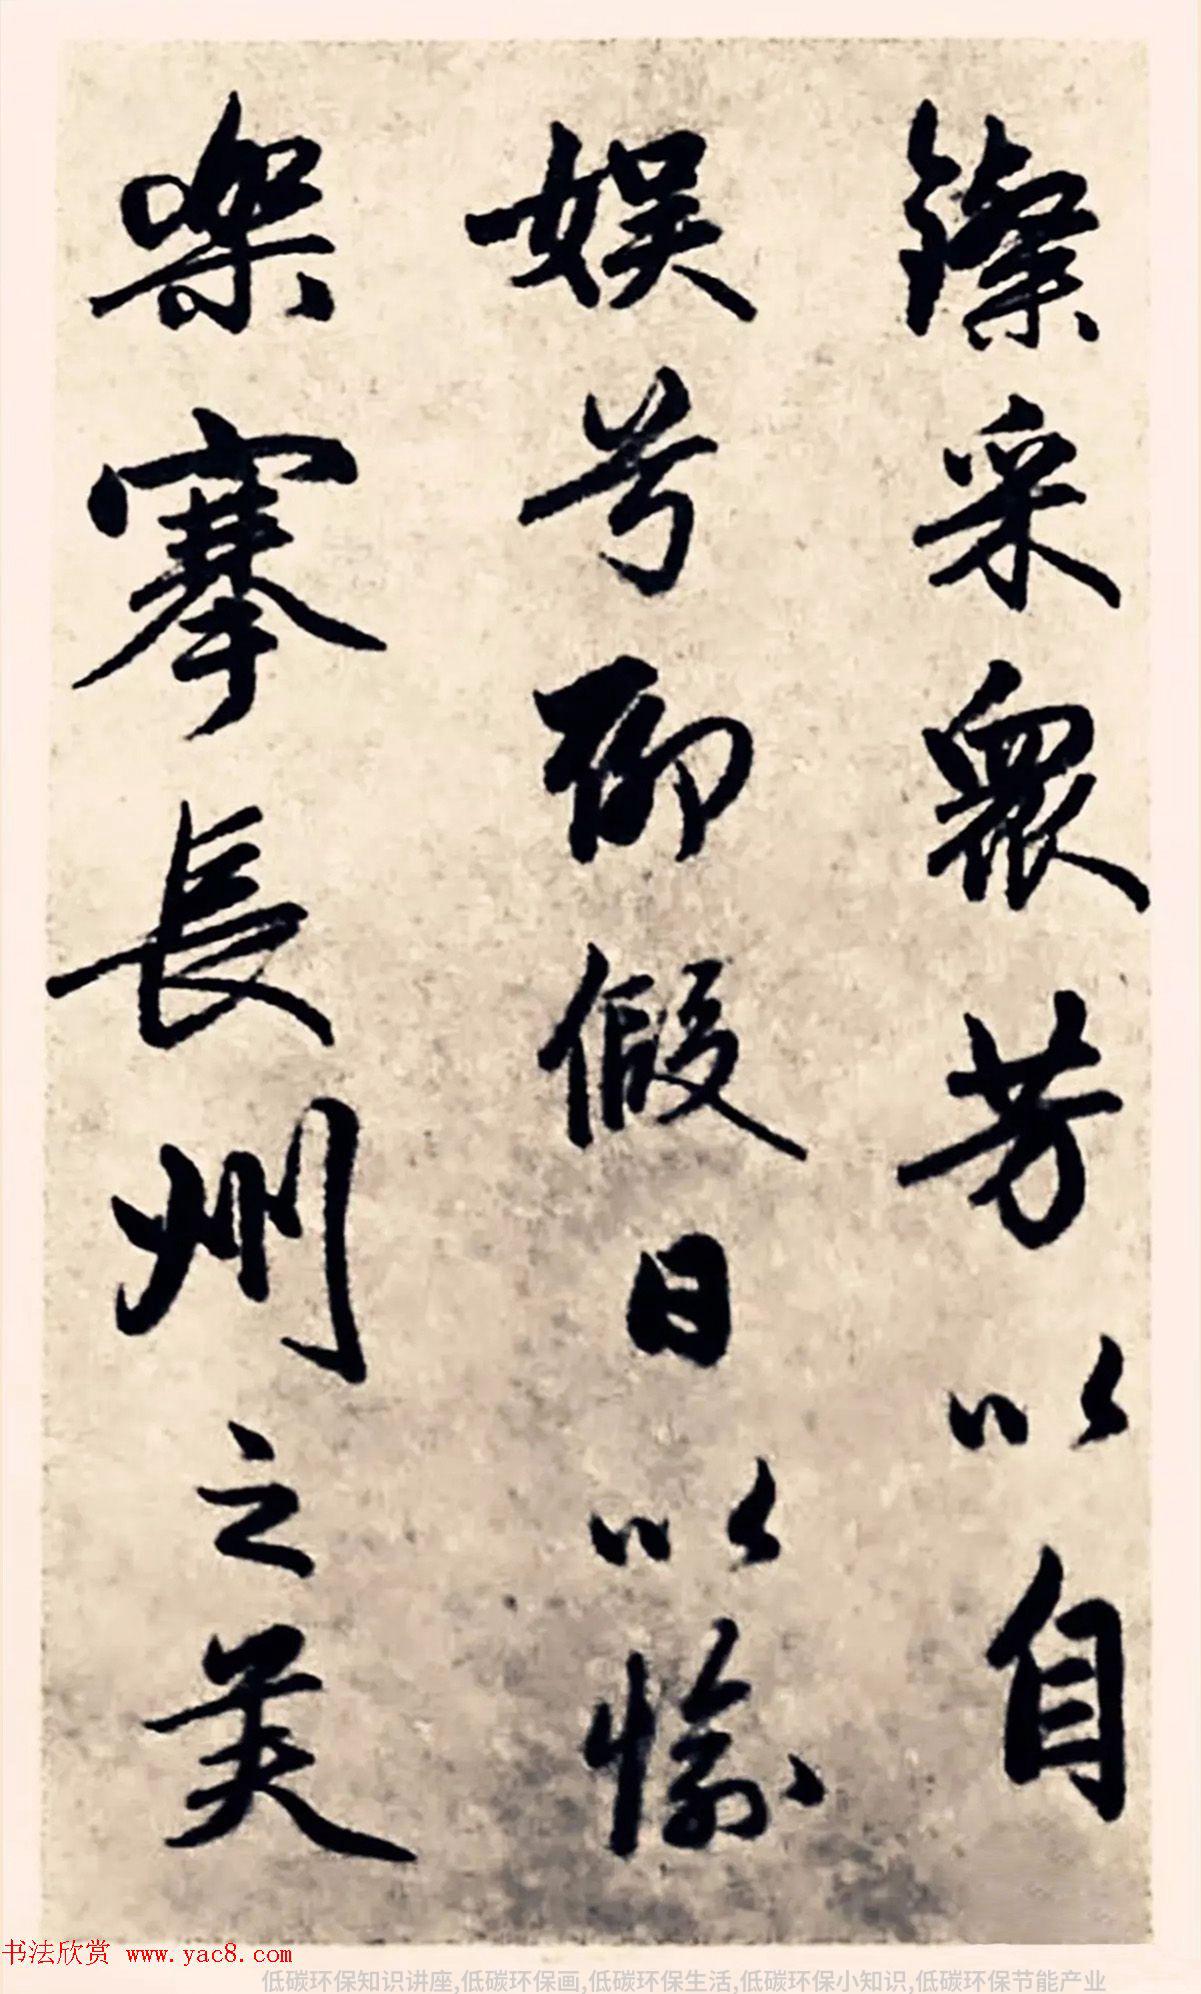 采衆芳以自
娱兮聊假日以愉
樂搴長州之美
书法欣赏 www.yac8.com
低碳环保知识讲座,低碳环保画,低碳环保生活,低碳环保小知识,低碳环保节能产业